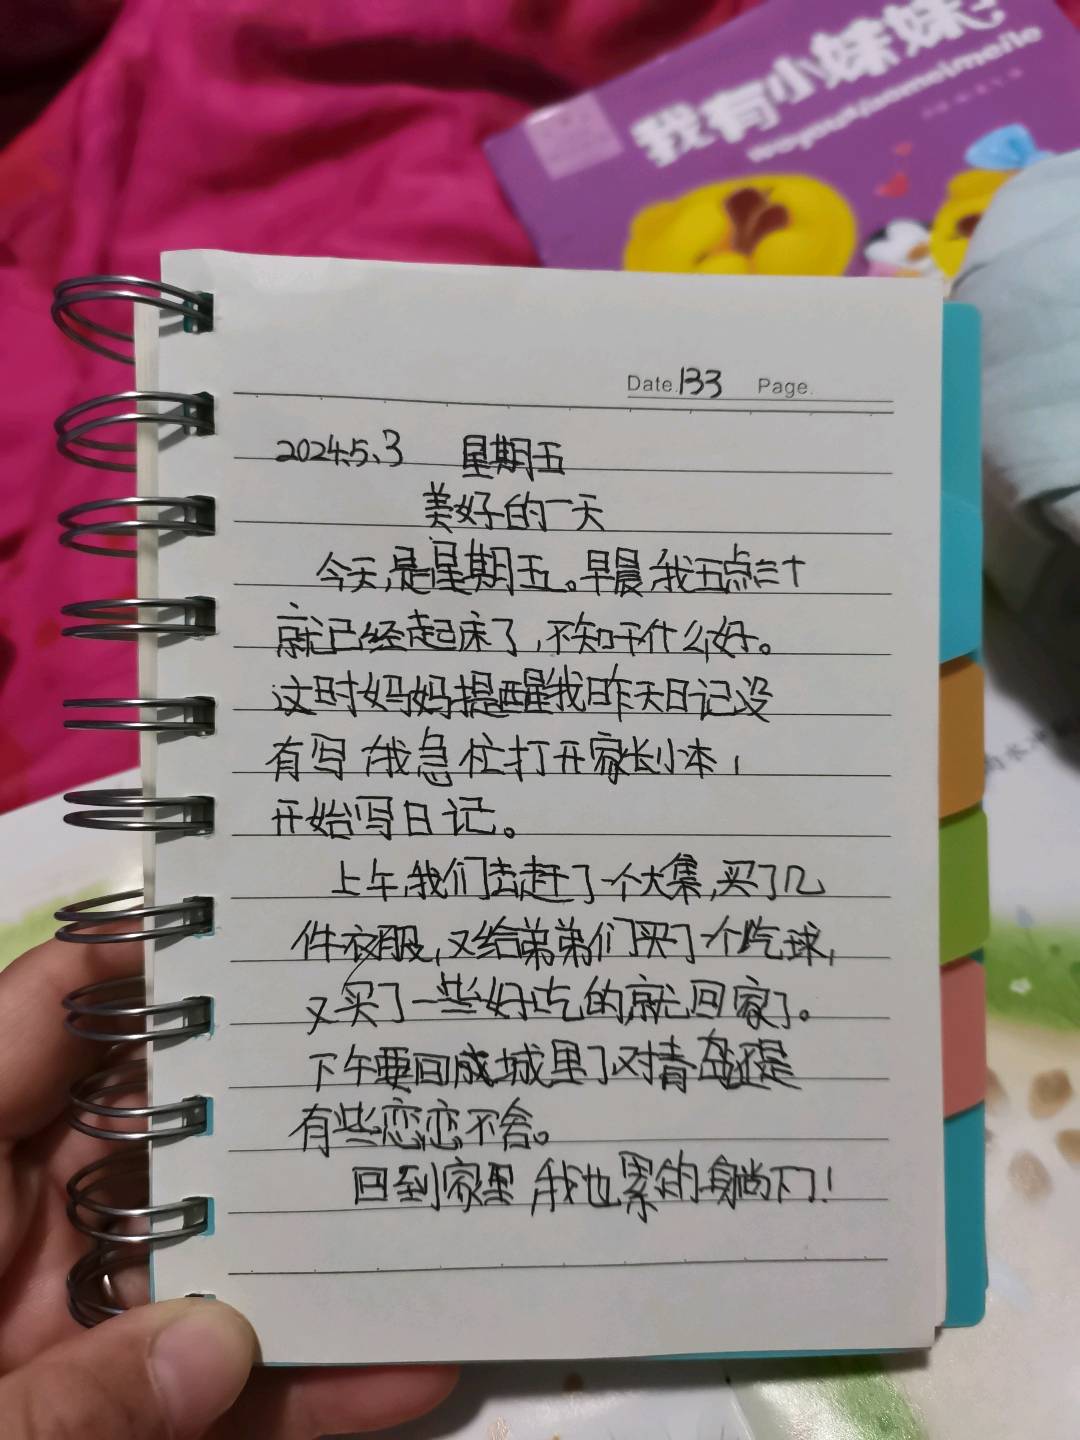 我有小妹妹
Date. 133 Page.
2024.5.3 星期五
美好的一天
今天,是星期五。早晨,我五点三十
就已经起床了,不知干什么好。
这时妈妈提醒我昨天日记没
有写,我急忙打开家长小本,
开始写日记。
上午,我们去赶了个大集,买了几
件衣服,又给弟弟们买了个吃球,
又买了一些好吃的就回家了。
下午要回成城里了对青岛还是
有些恋恋不舍。
回到家里,我也累的身躺下了!